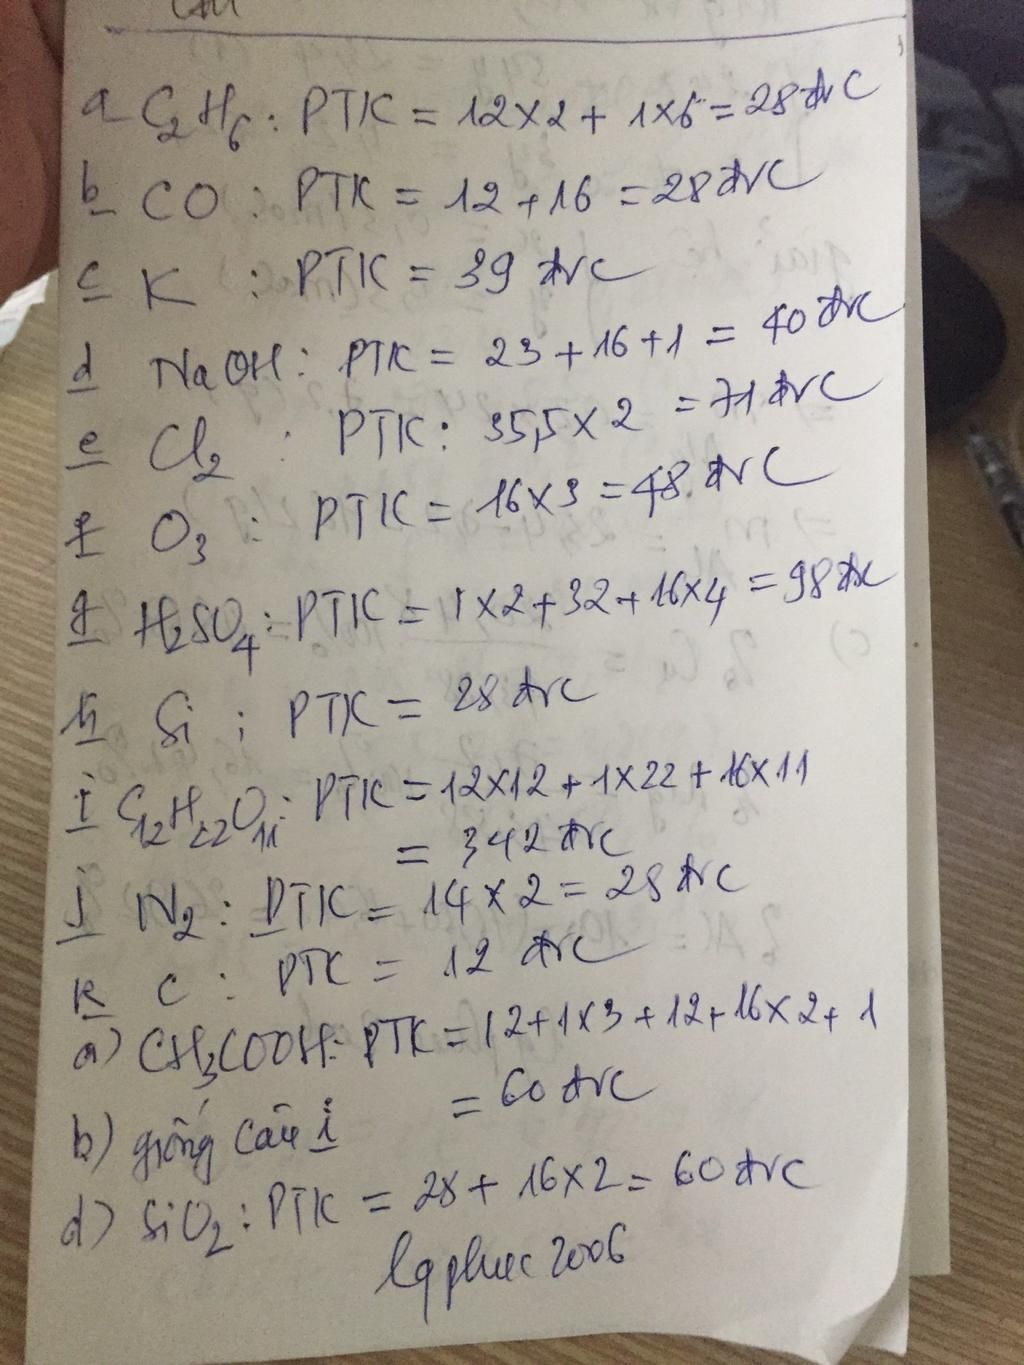 a C2H6 : PTK = 12x2 + 1x6 = 28 đvC
b CO : PTK = 12 + 16 = 28 đvC
c K : PTK = 39 đvC
d NaOH : PTK = 23 + 16 + 1 = 40 đvC
e Cl2 : PTK : 35,5 x 2 = 71 đvC
f O3 : PTK = 16x3 = 48 đvC
g H2SO4 : PTK = 1x2 + 32 + 16x4 = 98 đvC
h Si ; PTK = 28 đvC
i C12H22O11 : PTK = 12x12 + 1x22 + 16x11
= 342 đvC
j N2 : PTK = 14 x 2 = 28 đvC
k C : PTK = 12 đvC
a) CH3COOH : PTK = 12+1x3 + 12 + 16x2 + 1
= 60 đvC
b) giống câu i
d) SiO2 : PTK = 28 + 16x2 = 60 đvC
lqphuc 2006